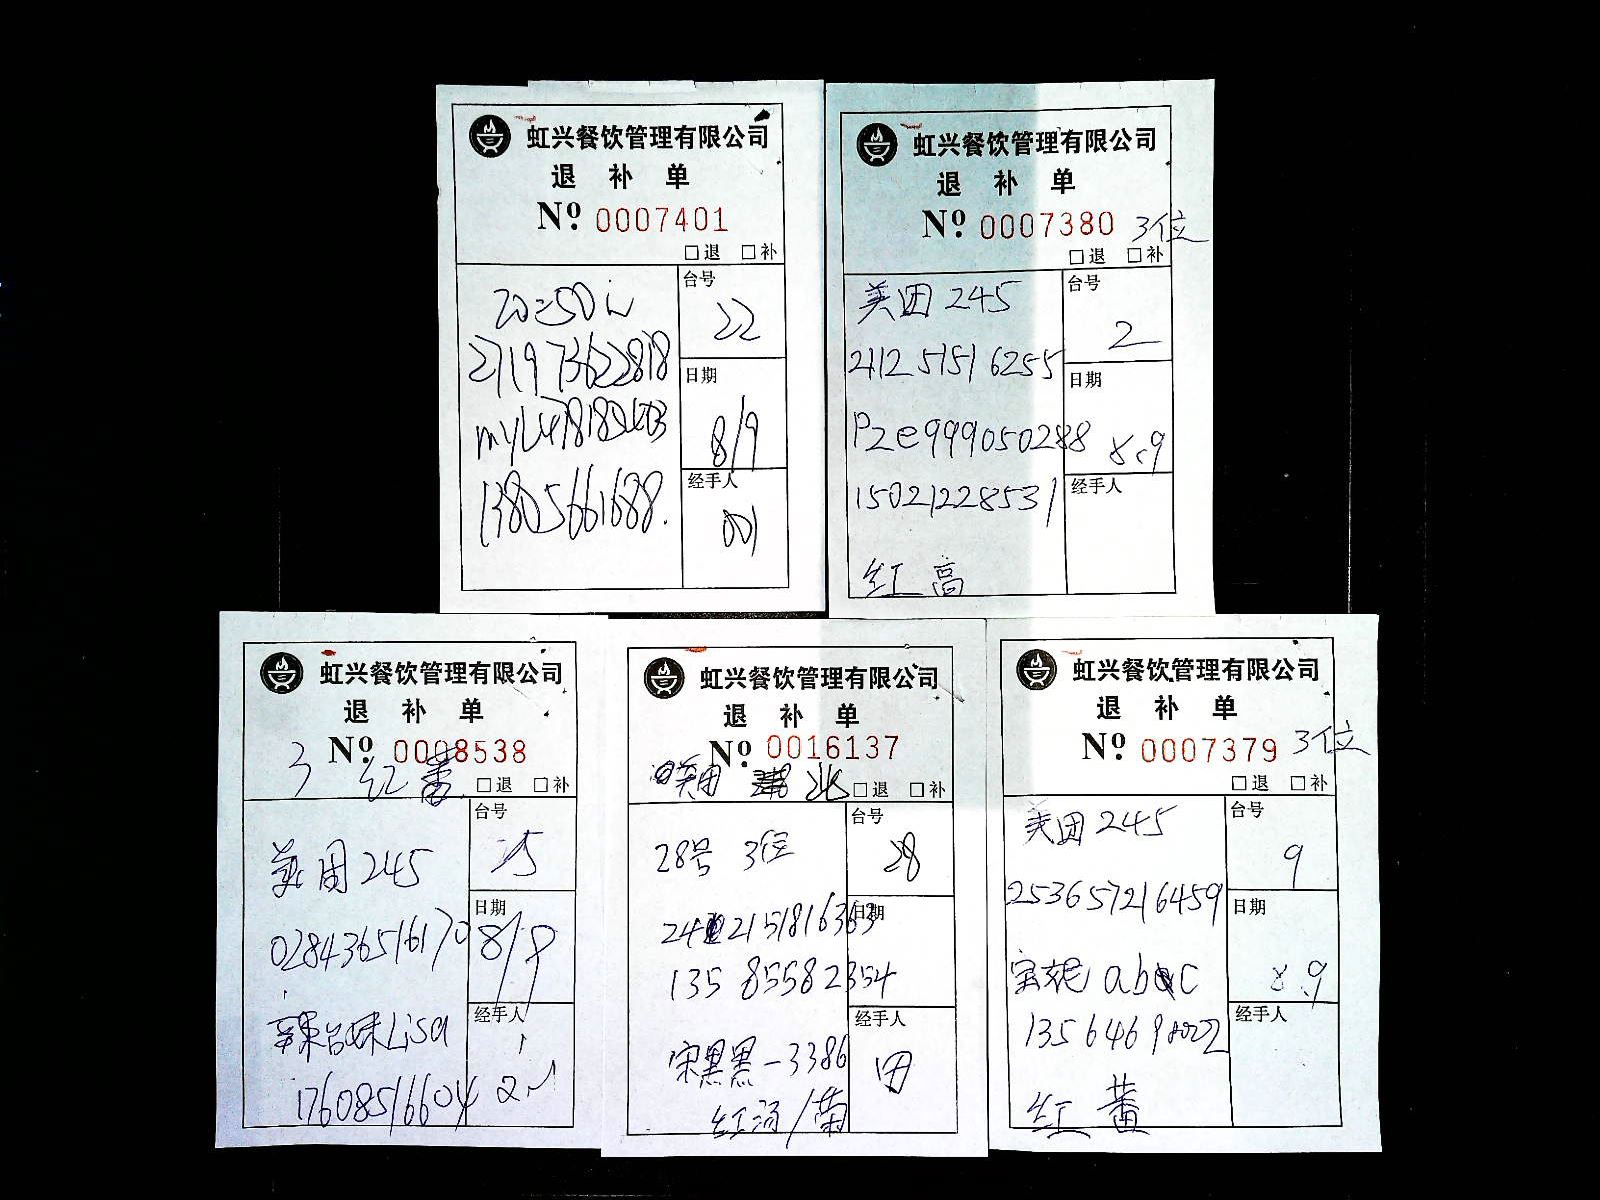 虹兴餐饮管理有限公司
退 补 单
Nº: 0007401
□退 □补
台号
22
271973622818
日期
8/9
13805661688.
经手人
001
虹兴餐饮管理有限公司
退 补 单
Nº: 0007380 3位
□退 □补
美团 245
台号
2
2112 5151 6255
日期
Pze999050288
8.9
15021228531
经手人
红 高
虹兴餐饮管理有限公司
退 补 单
Nº: 0008538
3 红 番
□退 □补
台号
美团245
15
日期
028436516170
8/9
经手人
辣台妹Lisa
17608516604
虹兴餐饮管理有限公司
退 补 单
Nº: 0016137
美团
□退 □补
台号
28号 3位
28
日期
2151816363
135 85582354
经手人
宋黑黑-3386
田
红汤/菌
虹兴餐饮管理有限公司
退 补 单
Nº: 0007379 3位
□退 □补
美团 245
台号
9
253657216459
日期
abc
8.9
经手人
红 番